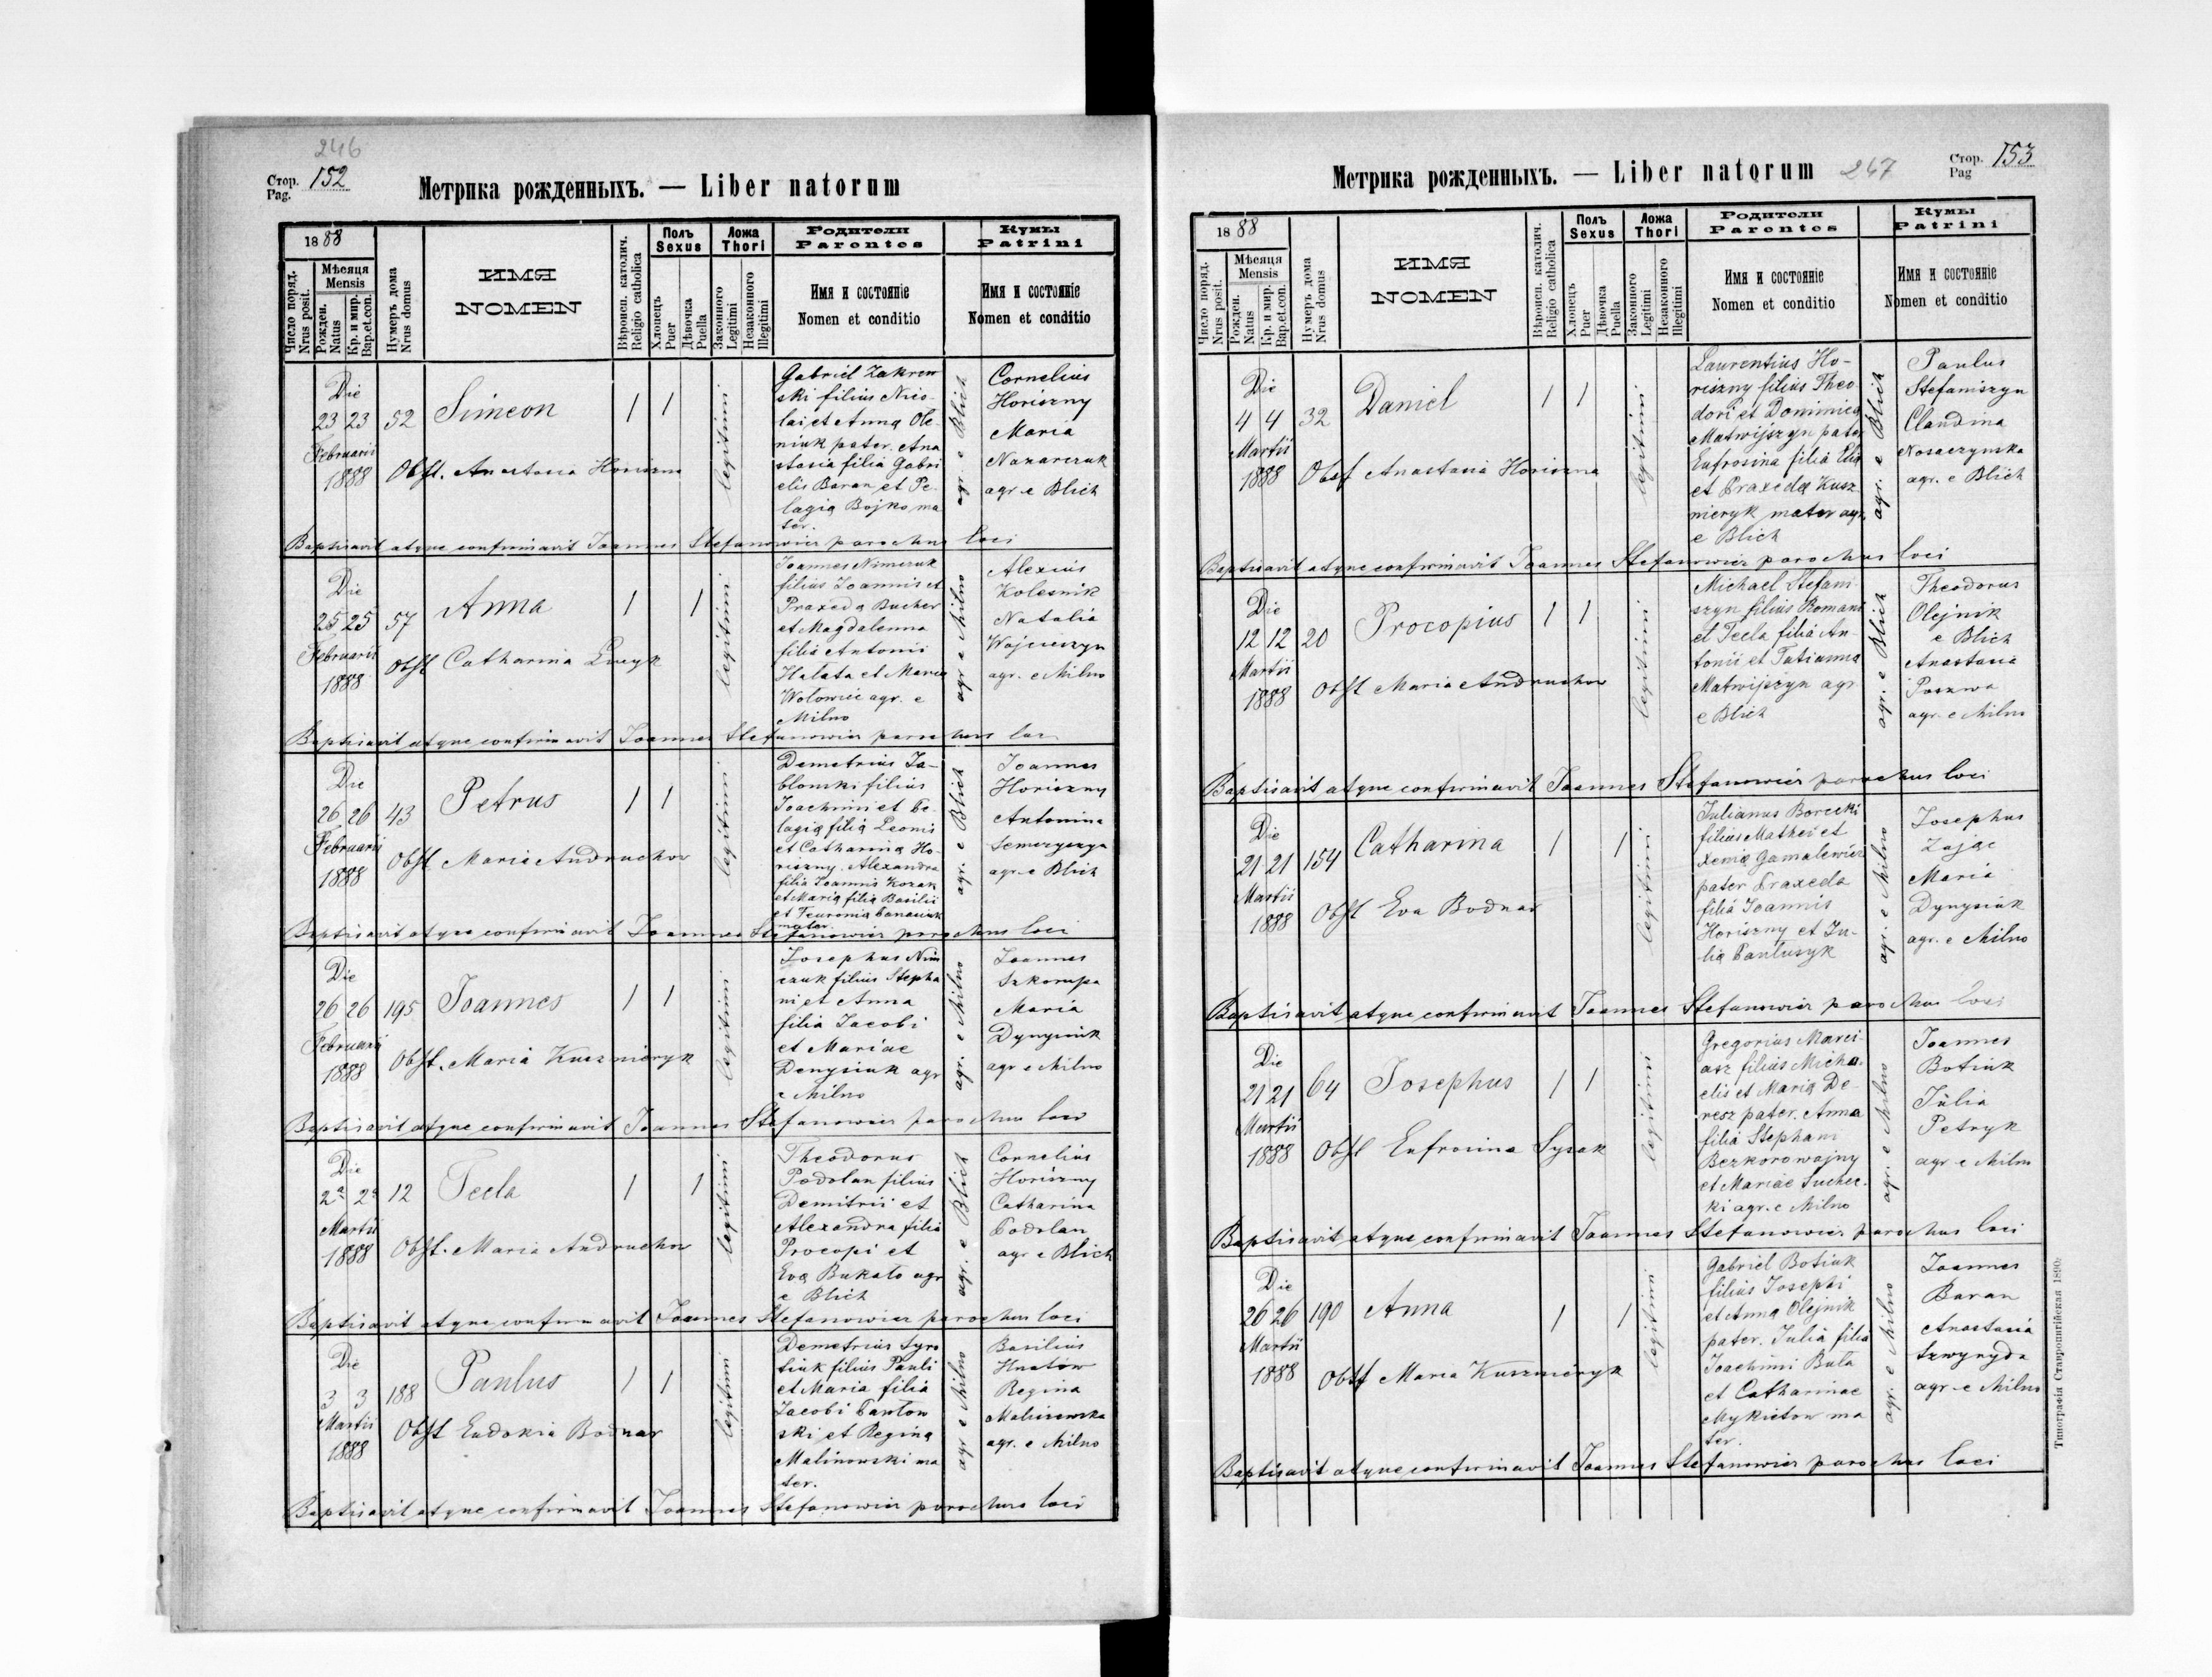 246
Стор. Pag. 152
Метрика рожденныхъ. — Liber natorum
1888
Число поряд. Nrus posit.
Мѣсяца Mensis
Рожден. Natus
Кр. и мир. Bap.et.con.
Нумеръ дома Nrus domus
ИМЯ
NOMEN
Вѣроисп. католич. Religio catholica
Полъ Sexus
Хлопець Puer
Дѣвочка Puella
Ложа Thori
Законного Legitimi
Незаконного Illegitimi
Родители
Parentes
Имя и состоянie
Nomen et conditio
Кумы
Patrini
Имя и состоянie
Nomen et conditio
Die
23 23 52 Simeon 1 1
Februarii
1888 Obst. Anastasia Horiszna
legitimi
Gabriel Zakrew
ski filius Nico-
lai et Anna Ole-
niuk pater. Ana
stasia filia Gabri
elis Baran et Pe-
lagia Bojko ma
ter.
agr. e Blich
Cornelius
Horiszny
Maria
Nazarczuk
agr. e Blich
Baptisavit atque confirmavit Joannes Stefanowicz parochus loci
Die
25 25 57 Anna 1 1
Februarii
1888 Obst Catharina
legitimi
Joannes Nimczuk
filius Joannis et
Praxeda Bucher
et Magdalenna
filia Antonii
Hałata et Maria
Wołowic agr. e
Milno
agr e Milno
Alexius
Kolesnik
Natalia
Wojciszyn
agr. e Milno
Baptisavit atque confirmavit Joannes Stefanowicz parochus loci
Die
26 26 43 Petrus 1 1
Februarii
1888 Obst Maria Andruchow
legitimi
Demetrius Ja-
blonski filius
Joachimi et Pe-
lagia filia Leonis
et Catharina Ho-
riszny. Alexandra
filia Joannis Kozak
et Maria filia Basilii
et Panasiuk
mater.
agr. e Blich
Joannes
Horiszny
Antonina
Semczyszyn
agr. e Blich
Baptisavit atque confirmavit Joannes Stefanowicz parochus loci
Die
26 26 195 Joannes 1 1
Februarii
1888 Obst. Maria Kusznieryk
legitimi
Josephus Nim
czuk filius Stepha
ni et Anna
filia Jacobi
et Mariae
Denysiuk agr
e Milno
agr. e Milno
Joannes
Szkorupa
Maria
Dynysiuk
agr e Milno
Baptisavit atque confirmavit Joannes Stefanowicz parochus loci
Die
2a 2a 12 Tecla 1 1
Martii
1888 Obst. Maria Andruchow
legitimi
Theodorus
Podolan filius
Demitrii et
Alexandra filia
Procopi et
Eva Bukato agr
e Blich
agr. e Blich
Cornelius
Horiszny
Catharina
Podolan
agr e Blich
Baptisavit atque confirmavit Joannes Stefanowicz parochus loci
Die
3 3 188 Paulus 1 1
Martii
1888 Obst Eudokia Bodnar
legitimi
Demetrius Syro
tiuk filius Pauli
et Maria filia
Jacobi Panton
ski et Regina
Malinowski ma
ter.
agr e Milno
Basilius
Hnatów
Regina
Maliszewska
agr. e Milno
Baptisavit atque confirmavit Joannes Stefanowicz parochus loci
Метрика рожденныхъ. — Liber natorum 247
Стор. Pag 153
1888
Число поряд. Nrus posit.
Мѣсяца Mensis
Рожден. Natus
Кр. и мир. Bap.et.con.
Нумеръ дома Nrus domus
ИМЯ
NOMEN
Вѣроисп. католич. Religio catholica
Полъ Sexus
Хлопець Puer
Дѣвочка Puella
Ложа Thori
Законного Legitimi
Незаконного Illegitimi
Родители
Parentes
Имя и состоянie
Nomen et conditio
Кумы
Patrini
Имя и состоянie
Nomen et conditio
Die
4 4 32 Daniel 1 1
Martii
1888 Obst Anastasia Horiszna
legitimi
Laurentius Ho-
riszny filius Theo
dori et Dominica
Matwijszyn pater
Eufrosina filia Elia
et Praxeda Kusz
nieryk mater agr.
e Blich
agr. e Blich
Paulus
Stefaniszyn
Claudina
Nosaczynska
agr. e Blich
Baptisavit atque confirmavit Joannes Stefanowicz parochus loci
Die
12 12 20 Procopius 1 1
Martii
1888 Obst Maria Andruchow
legitimi
Michael Stefani-
szyn filius Romani
et Tecla filia An-
tonii et Tatianna
Matwijszyn agr
e Blich
agr. e Blich
Theodorus
Olejnik
e Blich
Anastasia
Poszwa
agr. e Milno
Baptisavit atque confirmavit Joannes Stefanowicz parochus loci
Die
21 21 154 Catharina 1 1
Martii
1888 Obst Eva Bodnar
legitimi
Julianus Borecki
filius Mathei et
Xenia Gamalewicz
pater Praxeda
filia Joannis
Horiszny et Ju-
lia Pantusyk
agr. e Milno
Josephus
Zając
Maria
Dynysiuk
agr. e Milno
Baptisavit atque confirmavit Joannes Stefanowicz parochus loci
Die
21 21 64 Josephus 1 1
Martii
1888 Obst Eufrosina Sysak
legitimi
Gregorius Marci-
asz filius Micha-
elis et Maria De-
resz pater. Anna
filia Stephani
Bezkorowajny
et Mariae Suchec-
ki agr. e Milno
agr. e Milno
Joannes
Botiuk
Julia
Petryk
agr e Milno
Baptisavit atque confirmavit Joannes Stefanowicz parochus loci
Die
26 26 190 Anna 1 1
Martii
1888 Obst Maria Kusznieryk
legitimi
Gabriel Botiuk
filius Josephi
et Anna Olejnik
pater. Julia filia
Joachimi Buła
et Catharinae
Mykietow ma
ter.
agr. e Milno
Joannes
Baran
Anastasia
Szwynyda
agr e Milno
Baptisavit atque confirmavit Joannes Stefanowicz parochus loci
Типографія Ставропигійская 1890.